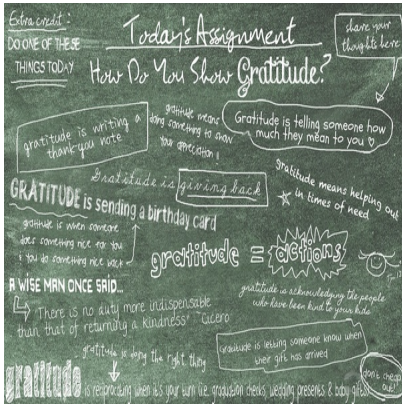 Extra credit:
DO ONE OF THESE
THINGS TODAY
Today's Assignment
How Do You Show Gratitude?
share your
thoughts here
gratitude is writing a
thank you note
gratitude means
doing something to show
your appreciation!
Gratitude is telling someone how
much they mean to you
Gratitude is giving back
gratitude means helping out
in times of need
GRATITUDE is sending a birthday card
gratitude is when someone
does something nice for you
& you do something nice back
gratitude = actions
A WISE MAN ONCE SAID...
"There is no duty more indispensable
than that of returning a kindness" Cicero
gratitude is acknowledging the people
who have been kind to your kids
gratitude is doing the right thing
Gratitude is letting someone know when
their gift has arrived
don't cheap
out!
gratitude is reciprocating when it's your turn (i.e. graduation checks, wedding presents & baby gifts)